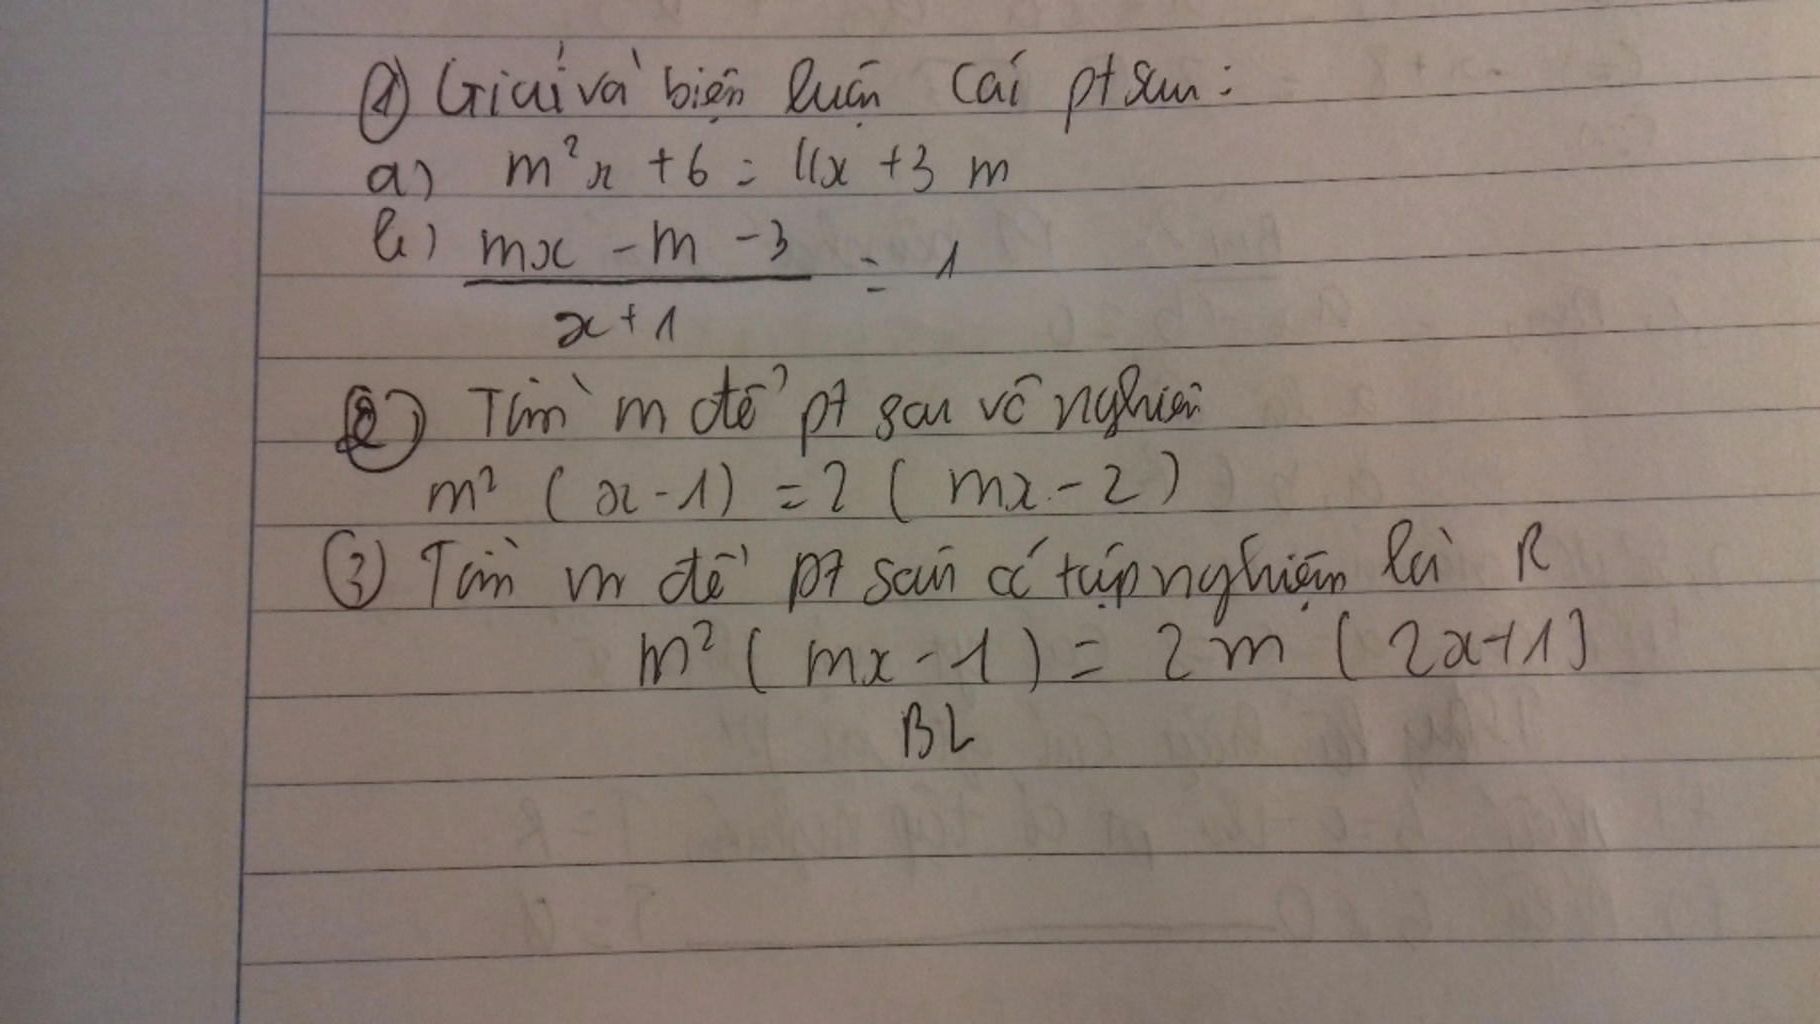 ① Giải và biện luận các pt sau:
a) m²x + 6 = 4x + 3m
b) (mx - m - 3)/(x + 1) = 1
② Tìm m để pt sau vô nghiệm
m² (x - 1) = 2 (mx - 2)
③ Tìm m để pt sau có tập nghiệm là R
m² (mx - 1) = 2m (2x + 1)
BL